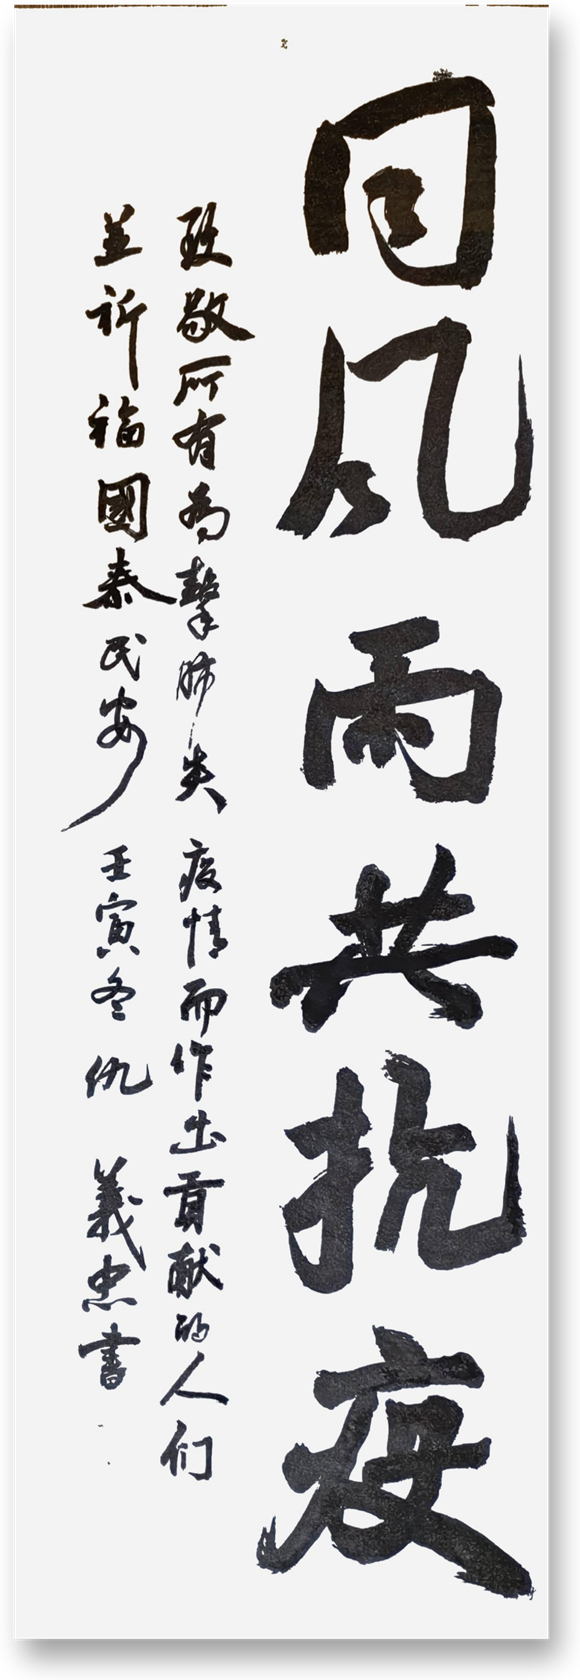 同风雨共抗疫
致敬所有為擊肺炎疫情而作出貢献的人们
並祈福國泰民安 壬寅冬 仇義忠書